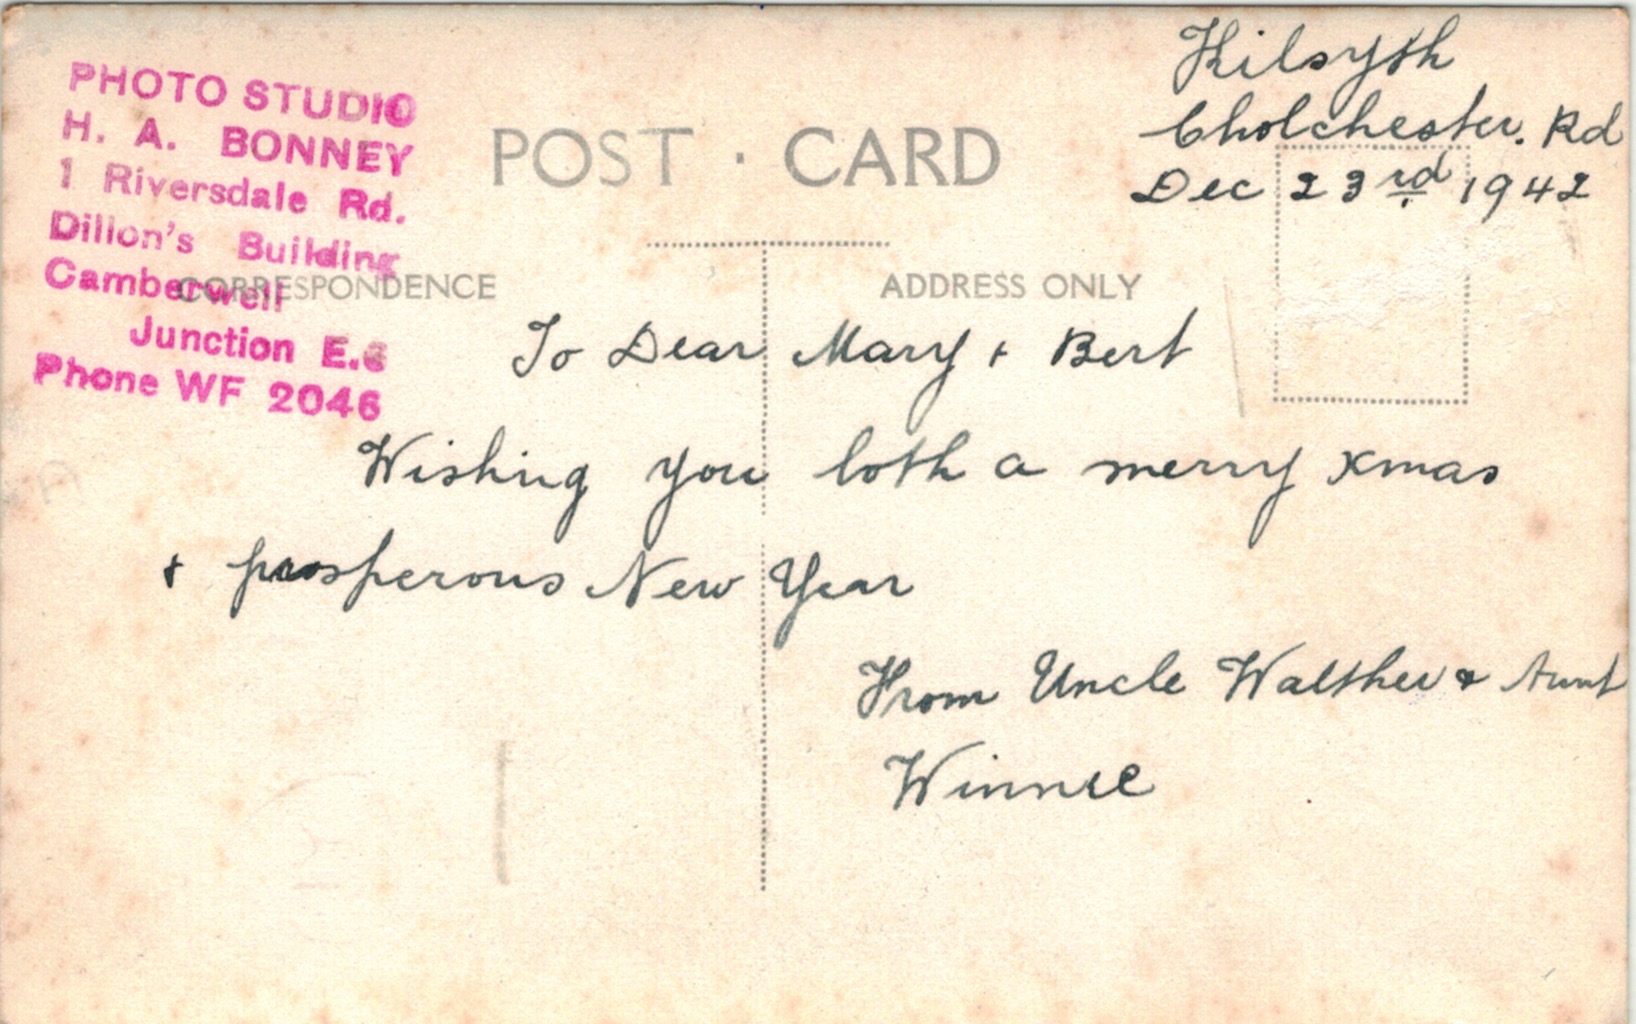 PHOTO STUDIO
H. A. BONNEY
1 Riversdale Rd.
Dillon's Building
Camberwell
Junction E.6
Phone WF 2046
POST · CARD
Kilsyth
Cholchester. Rd
Dec 23rd 1942
CORRESPONDENCE
ADDRESS ONLY
To Dear Mary + Bert
Wishing you both a merry xmas
+ prosperous New Year
From Uncle Walther & Aunt
Winnie